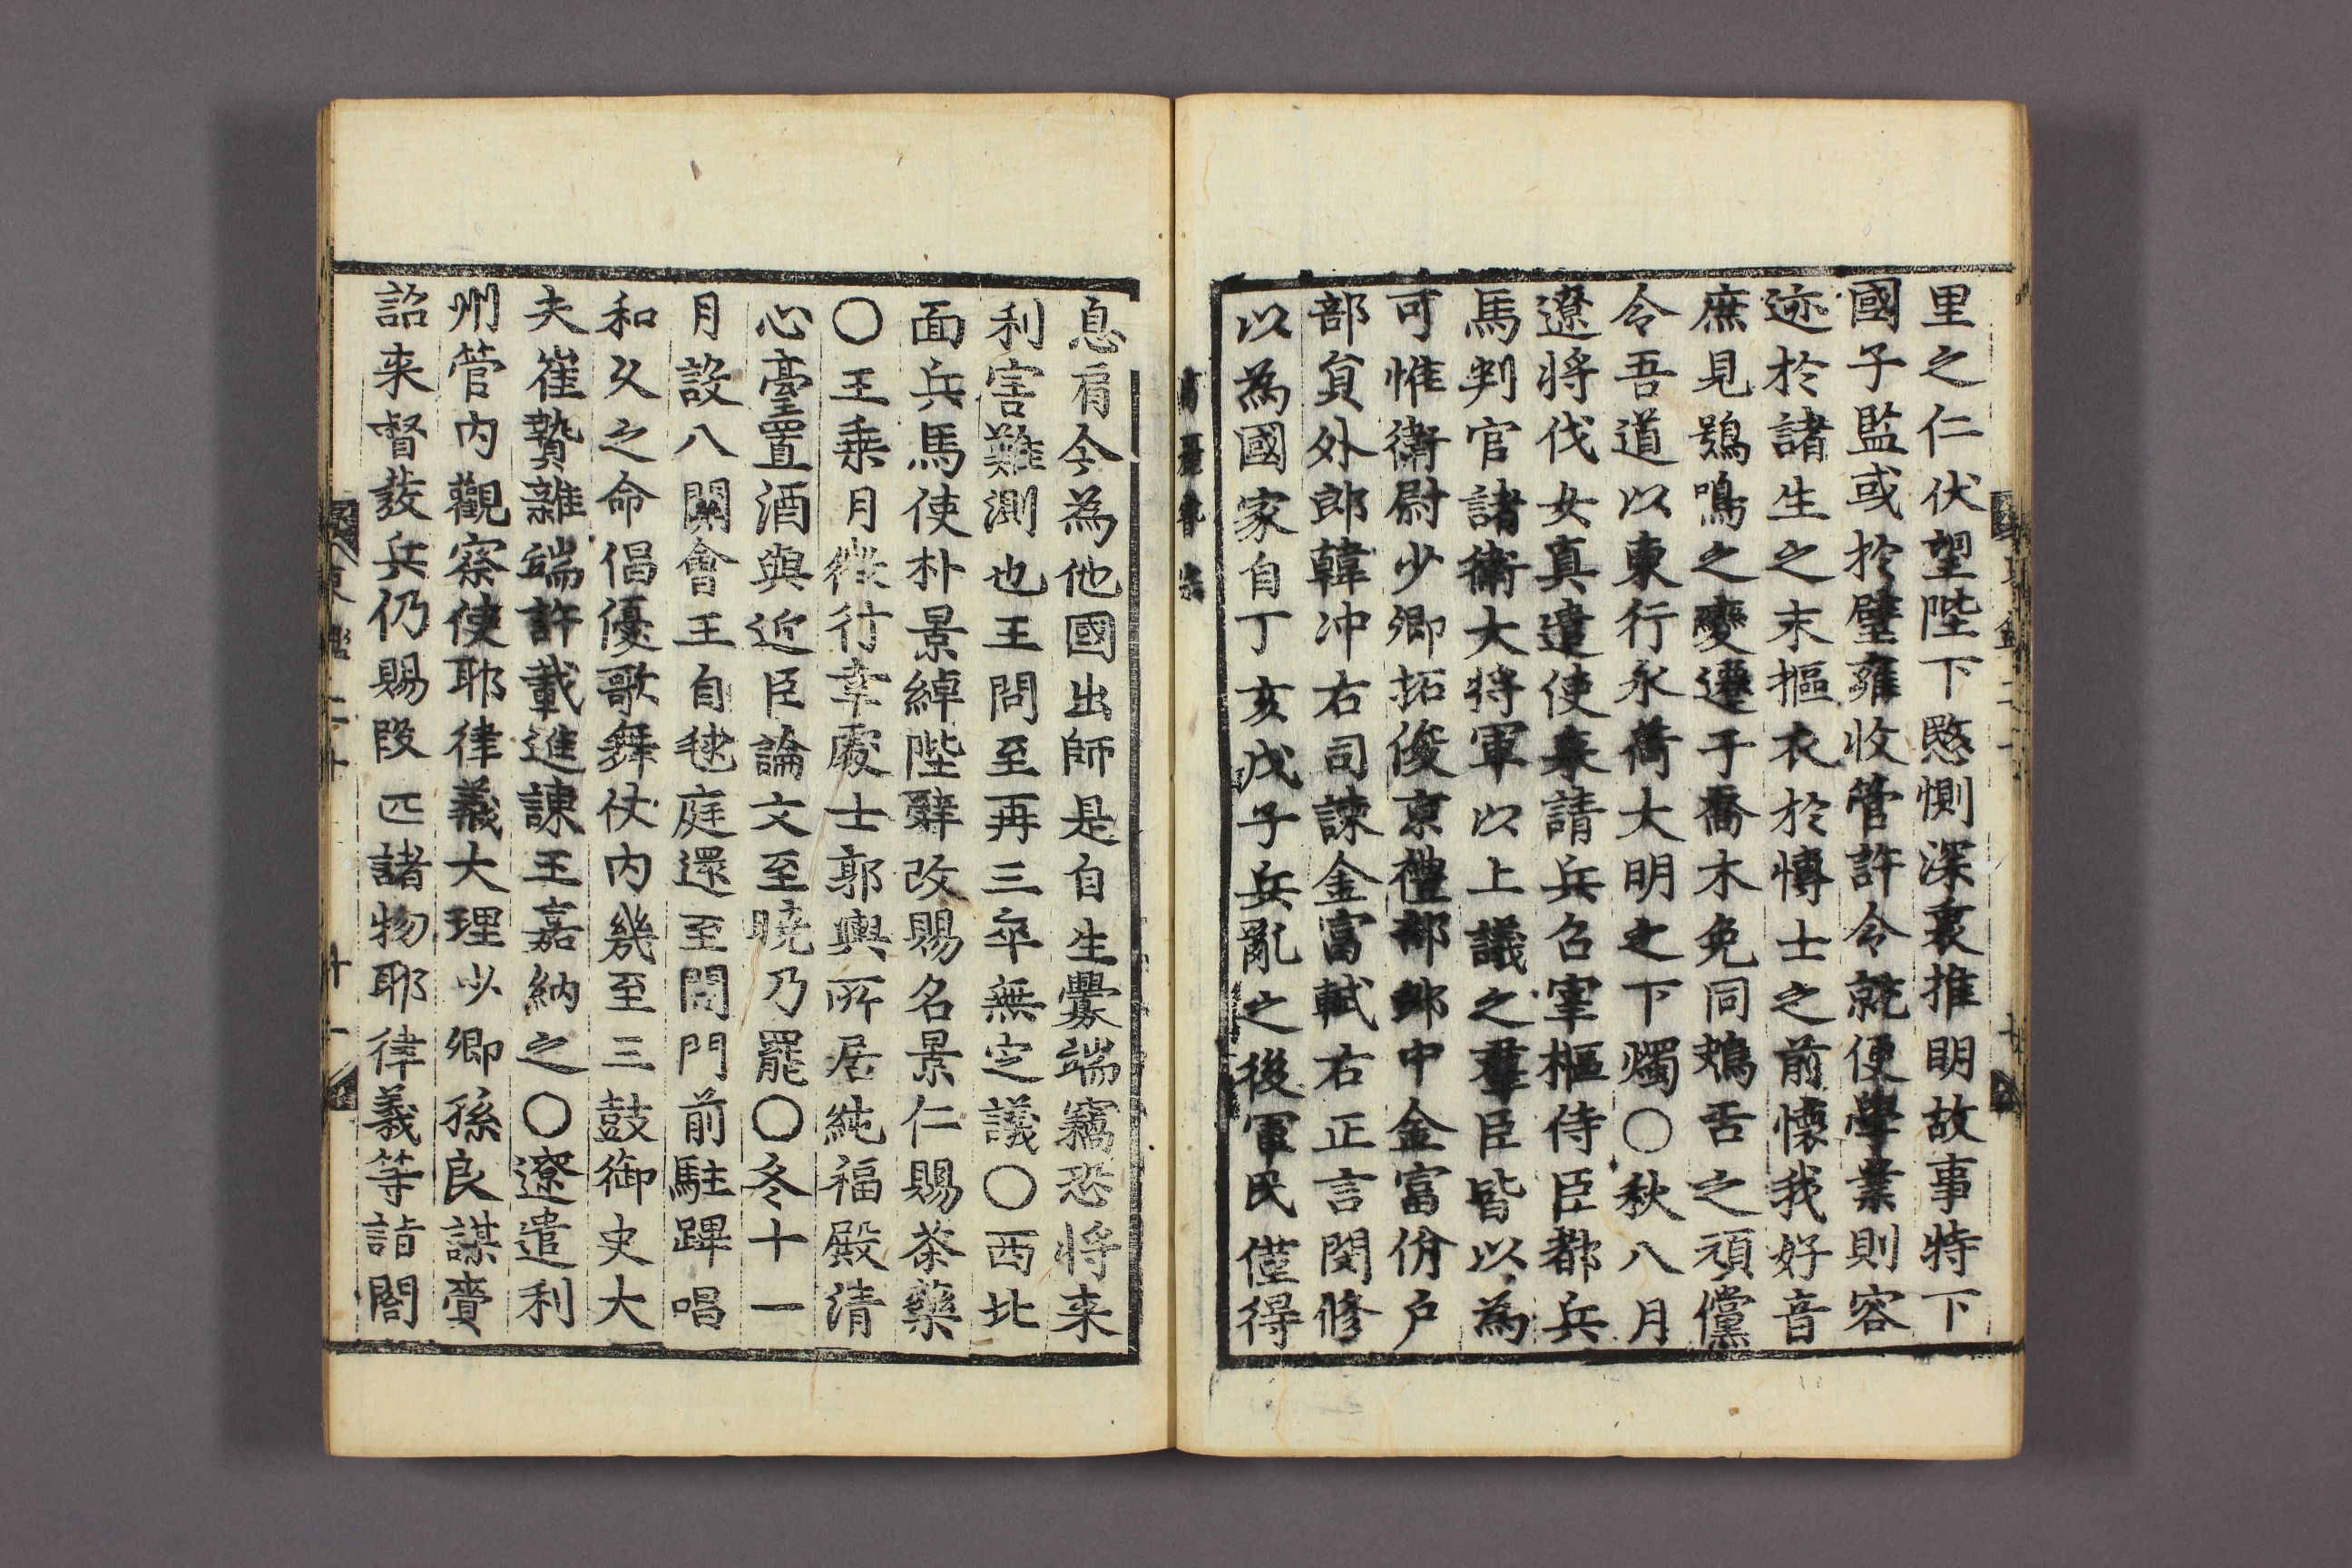 里之仁伏望陛下愍惻深衷推明故事特下
國子監或於璧雍收管許令就便學業則容
迹於諸生之末摳衣於博士之前懷我好音
庶見鴞鳴之變遷于喬木免同鴂舌之頑儻
令吾道以東行永荷大明之下燭〇秋八月
遼將伐女真遣使來請兵召宰樞侍臣都兵
馬判官諸衛大將軍以上議之羣臣皆以為
可惟衛尉少卿拓俊京禮部郎中金富佾户
部負外郎韓冲右司諫金富軾右正言閔修
以為國家自丁亥戊子兵亂之後軍民僅得
息肩今為他國出師是自生釁端竊恐將来
利害難測也王問至再三卒無定議〇西北
面兵馬使朴景綽陛辭改賜名景仁賜茶藥
〇王乗月微行幸處士郭輿所居純福殿清
心臺置酒與近臣論文至曉乃罷〇冬十一
月設八關會王自毬庭還至閤門前駐蹕唱
和久之命倡優歌舞仗内幾至三鼓御史大
夫崔贄雜端許載進諫王嘉納之〇遼遣利
州管内觀察使耶律義大理少卿孫良謀賷
詔来督發兵仍賜段匹諸物耶律義等詣閤